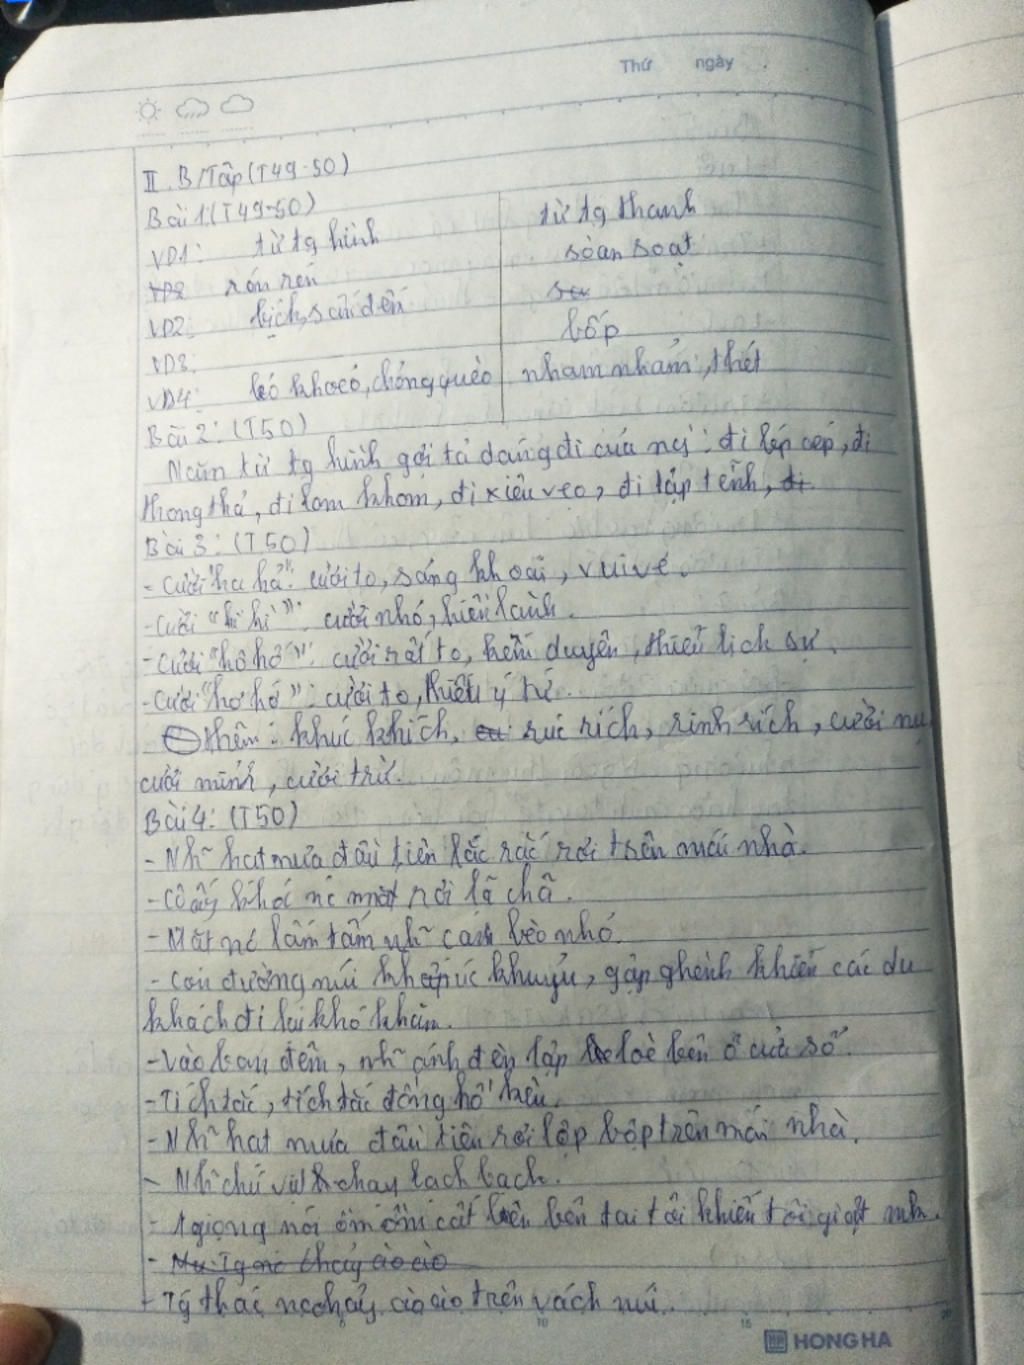 Thứ ngày
II. B/Tập (T49-50)
Bài 1 (T49-50)
từ tg thanh
VD1: từ tg hình
soàn soạt
rón rén
VD2: bịch, sấn đến
bốp
VD3:
VD4: lẻo khoẻo, chỏng quèo nham nhảm, thét
Bài 2: (T50)
Năm từ tg hình gợi tả dáng đi của ng: đi lép cép, đi
thong thả, đi lom khom, đi xiêu vẹo, đi lập tễnh, đi
Bài 3: (T50)
- Cười "ha hả": cười to, sảng khoái, vui vẻ.
- Cười "hì hì": cười nhỏ, hiền lành.
- Cười "hô hố": cười rất to, kém duyên, thiếu lịch sự.
- Cười "hơ hớ": cười to, thiếu ý tứ.
thêm: khúc khích, rúc rích, rinh rích, cười
cười mỉm, cười trừ.
Bài 4: (T50)
- Nh~ hạt mưa đầu tiên lắc rắc rơi trên mái nhà.
- Cô ấy khóc nc mắt rơi lã chã.
- Mắt nó lấm tấm nh~ cánh bèo nhỏ.
- Con đường núi khúc khuỷu, gập ghềnh khiến các du
khách đi lại khó khăn.
- Vào ban đêm, nh~ ánh đèn lập loè bên ô cửa sổ.
- Tích tắc, tích tắc đồng hồ kêu.
- Nh~ hạt mưa đầu tiên rơi lộp bộp trên mái nhà.
- Nh~ chú vịt chạy lạch bạch.
- 1 giọng nói ồm ồm cất lên bên tai tôi khiến tôi giật mh.
- Tg thác nc chảy ào ào trên vách núi.
10 15 20
HONG HA